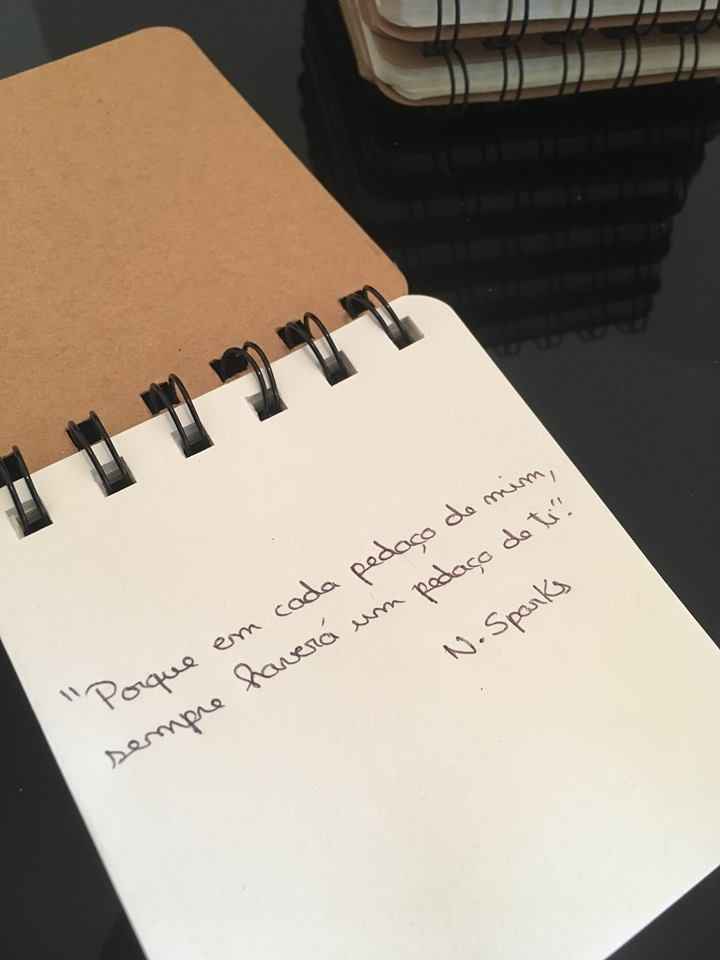 "Porque em cada pedaço de mim,
sempre haverá um pedaço de ti".
N. Sparks